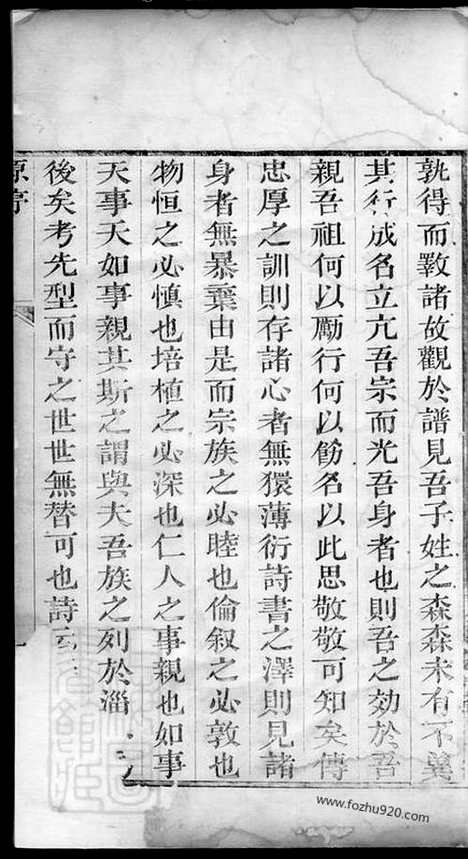 孰得而斁諸故觀於譜見吾子姓之森森未有不冀
其行成名立亢吾宗而光吾身者也則吾之効於吾
親吾祖何以勵行何以飭名以此思敬敬可知矣傳
忠厚之訓則存諸心者無獧薄衍詩書之澤則見諸
身者無暴棄由是而宗族之必睦也倫叙之必敦也
物恒之必慎也培植之必深也仁人之事親也如事
天事天如事親其斯之謂與夫吾族之列於淄
後矣考先型而守之世世無替可也詩云
原序
www.fozhu920.com